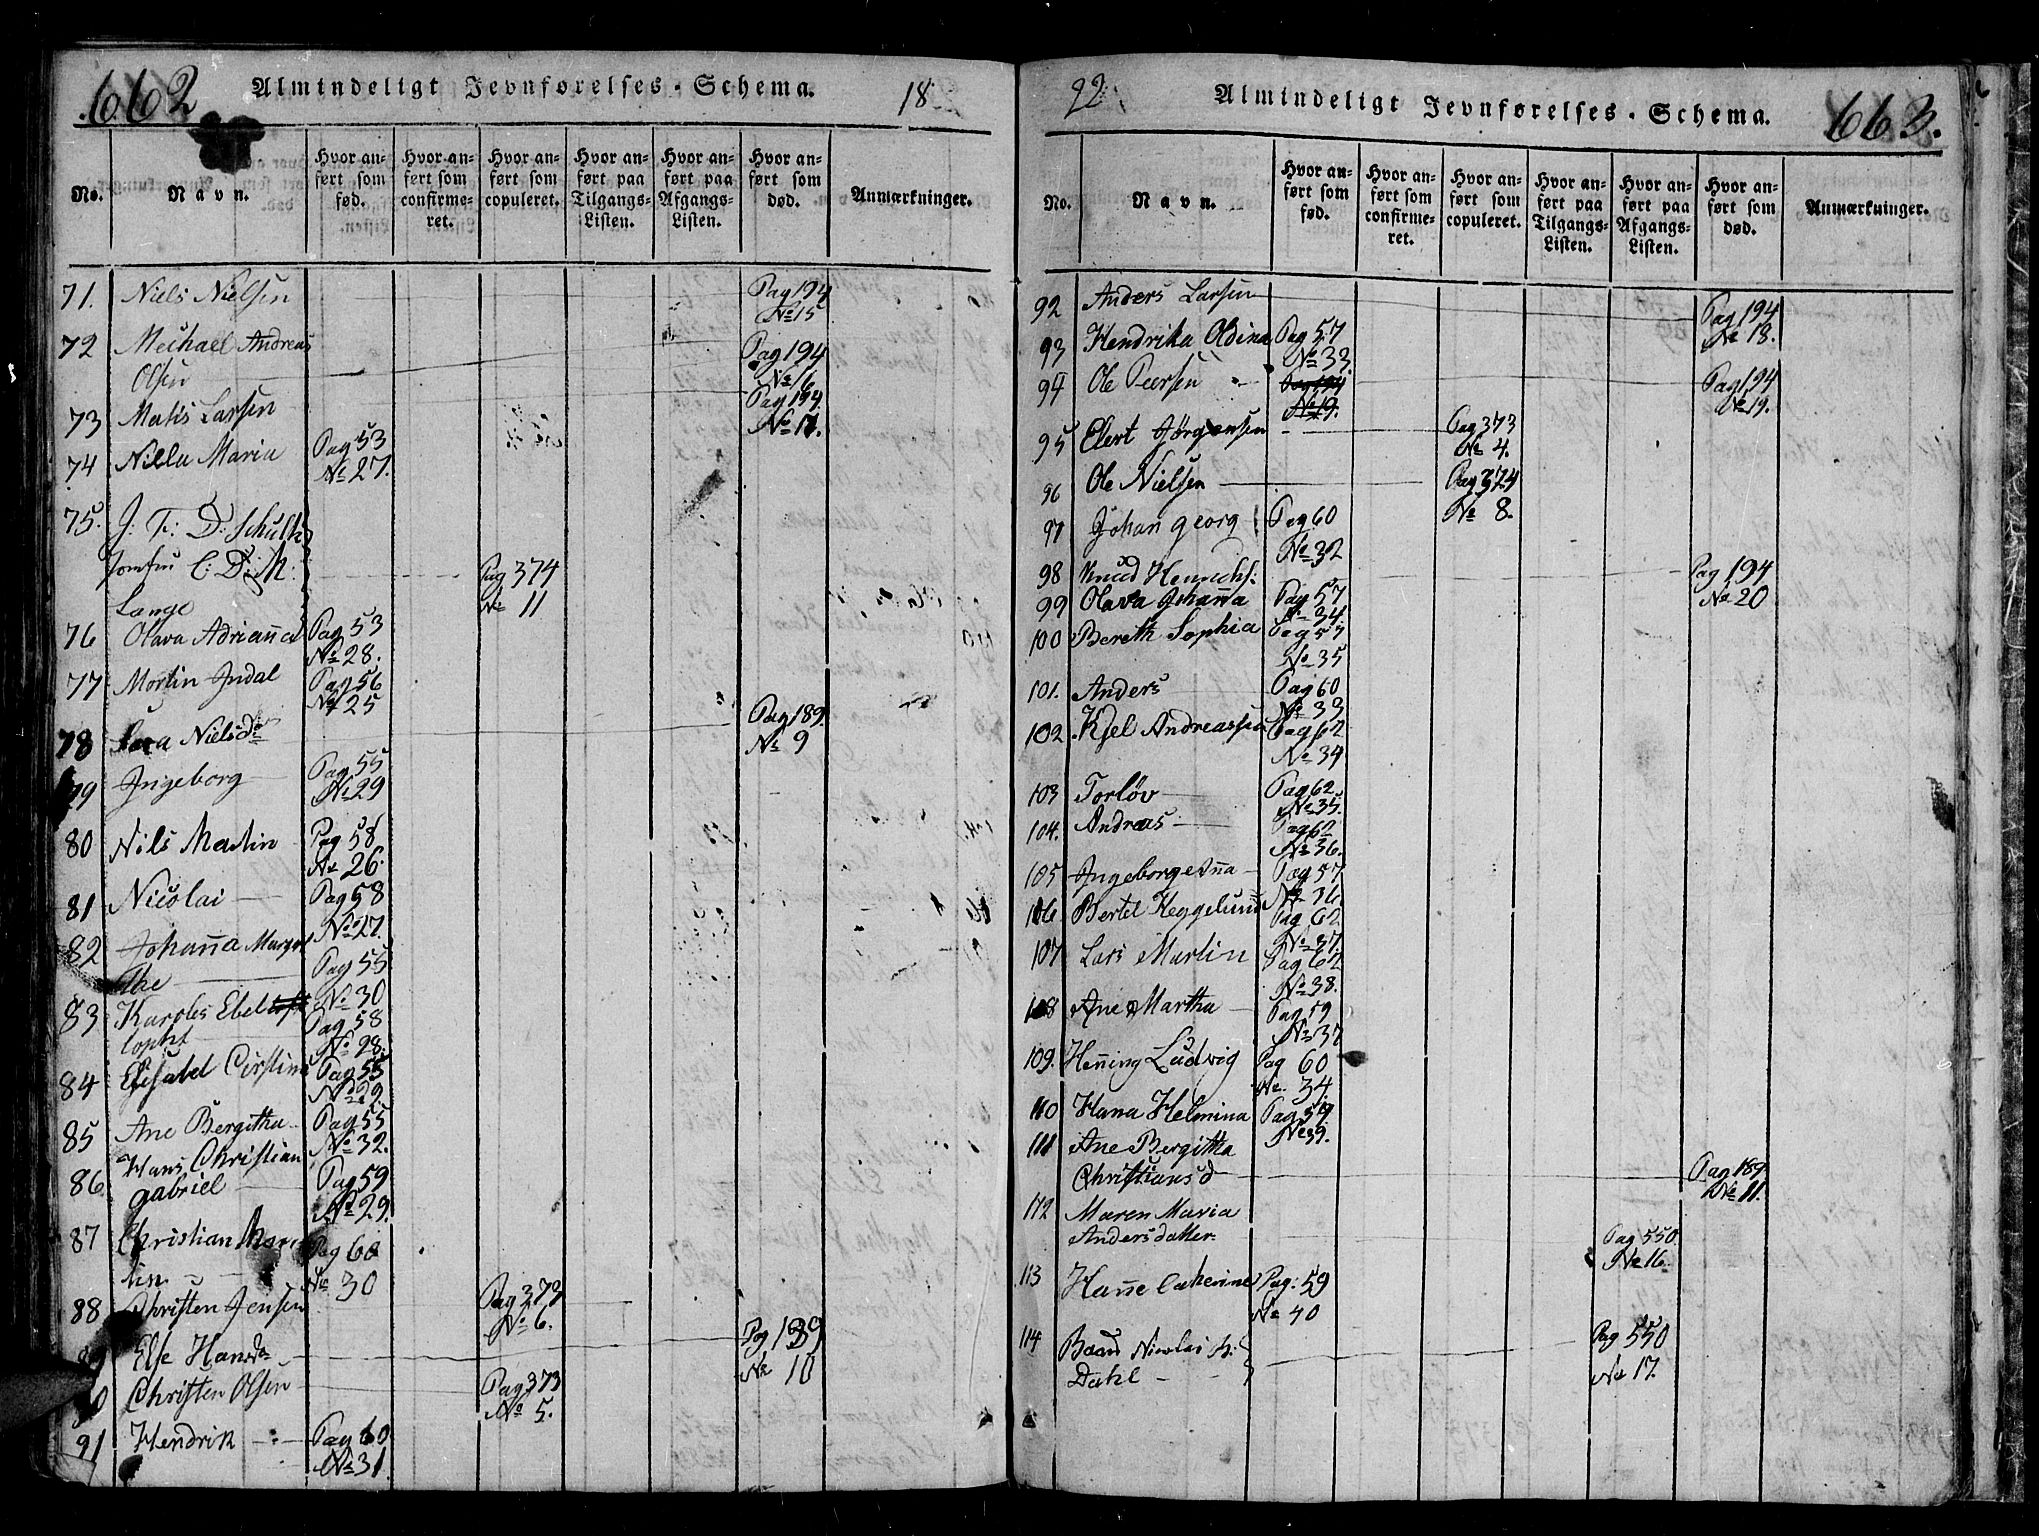 662 Almindeligt Jevnførelses-Schema. 18
No. Navn. Hvor anført som fød. Hvor anført som confirmeret. Hvor anført som copuleret. Hvor anført paa Tilgangs-Listen. Hvor anført paa Afgangs-Listen. Hvor anført som død. Anmærkninger.
71. Niels Nielsen Pag 194
No 15
72 Michael Andreas Pag 194
Olsen No 16
73 Matis Larsen Pag 194
No 17.
74 Nilla Maria Pag 53
No 27.
75. J. F: D: Schultz
Jomfru C: D: M: Pag 374
Lange No 11
76 Olava Adrianna Pag 53
No 28.
77 Mortin Indal Pag 56
No 25
78 Sara Nielsdr Pag 189
No 9
79 Ingeborg Pag 55
No 29
80 Nils Martin Pag 58
No 26.
81 Nicolai Pag 58
No 27
82 Johanna Margre Pag 55
the No 30
83 Karolus Ebel Pag 58
topht No 28.
84 Elisabet Cirstina Pag 55
85 Ane Bergitha Pag 55
No 32.
86. Hans Christian Pag 59
Gabriel No 29.
87 Christian Mor Pag 60
tin No 30
88 Christen Jensen Pag 373
No 6.
89 Else Hansda Pag 189
No 10
90 Christen Olsen Pag 373
No 5.
91 Hendrik Pag 60
No 31
22 Almindeligt Jevnførelses-Schema. 663.
No. Navn. Hvor anført som fød. Hvor anført som confirmeret. Hvor anført som copuleret. Hvor anført paa Tilgangs-Listen. Hvor anført paa Afgangs-Listen. Hvor anført som død. Anmærkninger.
92 Anders Larsen Pag 194
No 18.
93 Hendrika Oldina Pag 57
No 33.
94 Ole Peersen Pag 194 Pag 194
No 19. No 19.
95 Elert Jørgensen Pag 373
No 4.
96 Ole Nielsen Pag 374
No 8.
97 Johan Georg Pag 60
No 32
98 Knud Henrichs: Pag 194
No 20
99 Olava Johanna Pag 57
No 34.
100 Bereth Sophia Pag 57
No 35
101. Anders Pag 60
No 33
102 Kjel Andreassen Pag 62
No 34
103 Torløv Pag 62
No 35.
104. Andreas Pag 62
No 36.
105 Ingeborg Anna Pag 57
No 36.
106 Bertel Heggelund Pag 62
No 37.
107 Lars Martin Pag 62
No 38.
108 Ane Martha Pag 59
No 37
109. Henning Ludvig Pag 60
No. 34
110 Hana Helmina Pag 59
No 39.
111 Ane Bergitha
Christiansd Pag 189
No 11.
112 Maren Maria
Andersdatter. Pag 550
No 16.
113 Hanne Catherine Pag: 59
No 40
114 Baard Nicolai A: Pag 550
Dahl No 17.